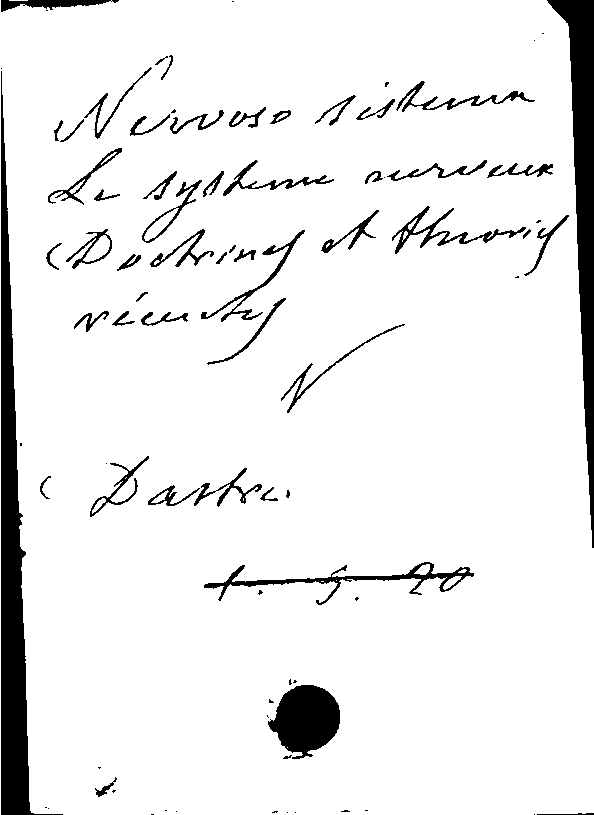 Nervoso sistema
Le systeme nerveux
(Doctrines et theories
récentes
V
( Dastre.
1. 5. 20